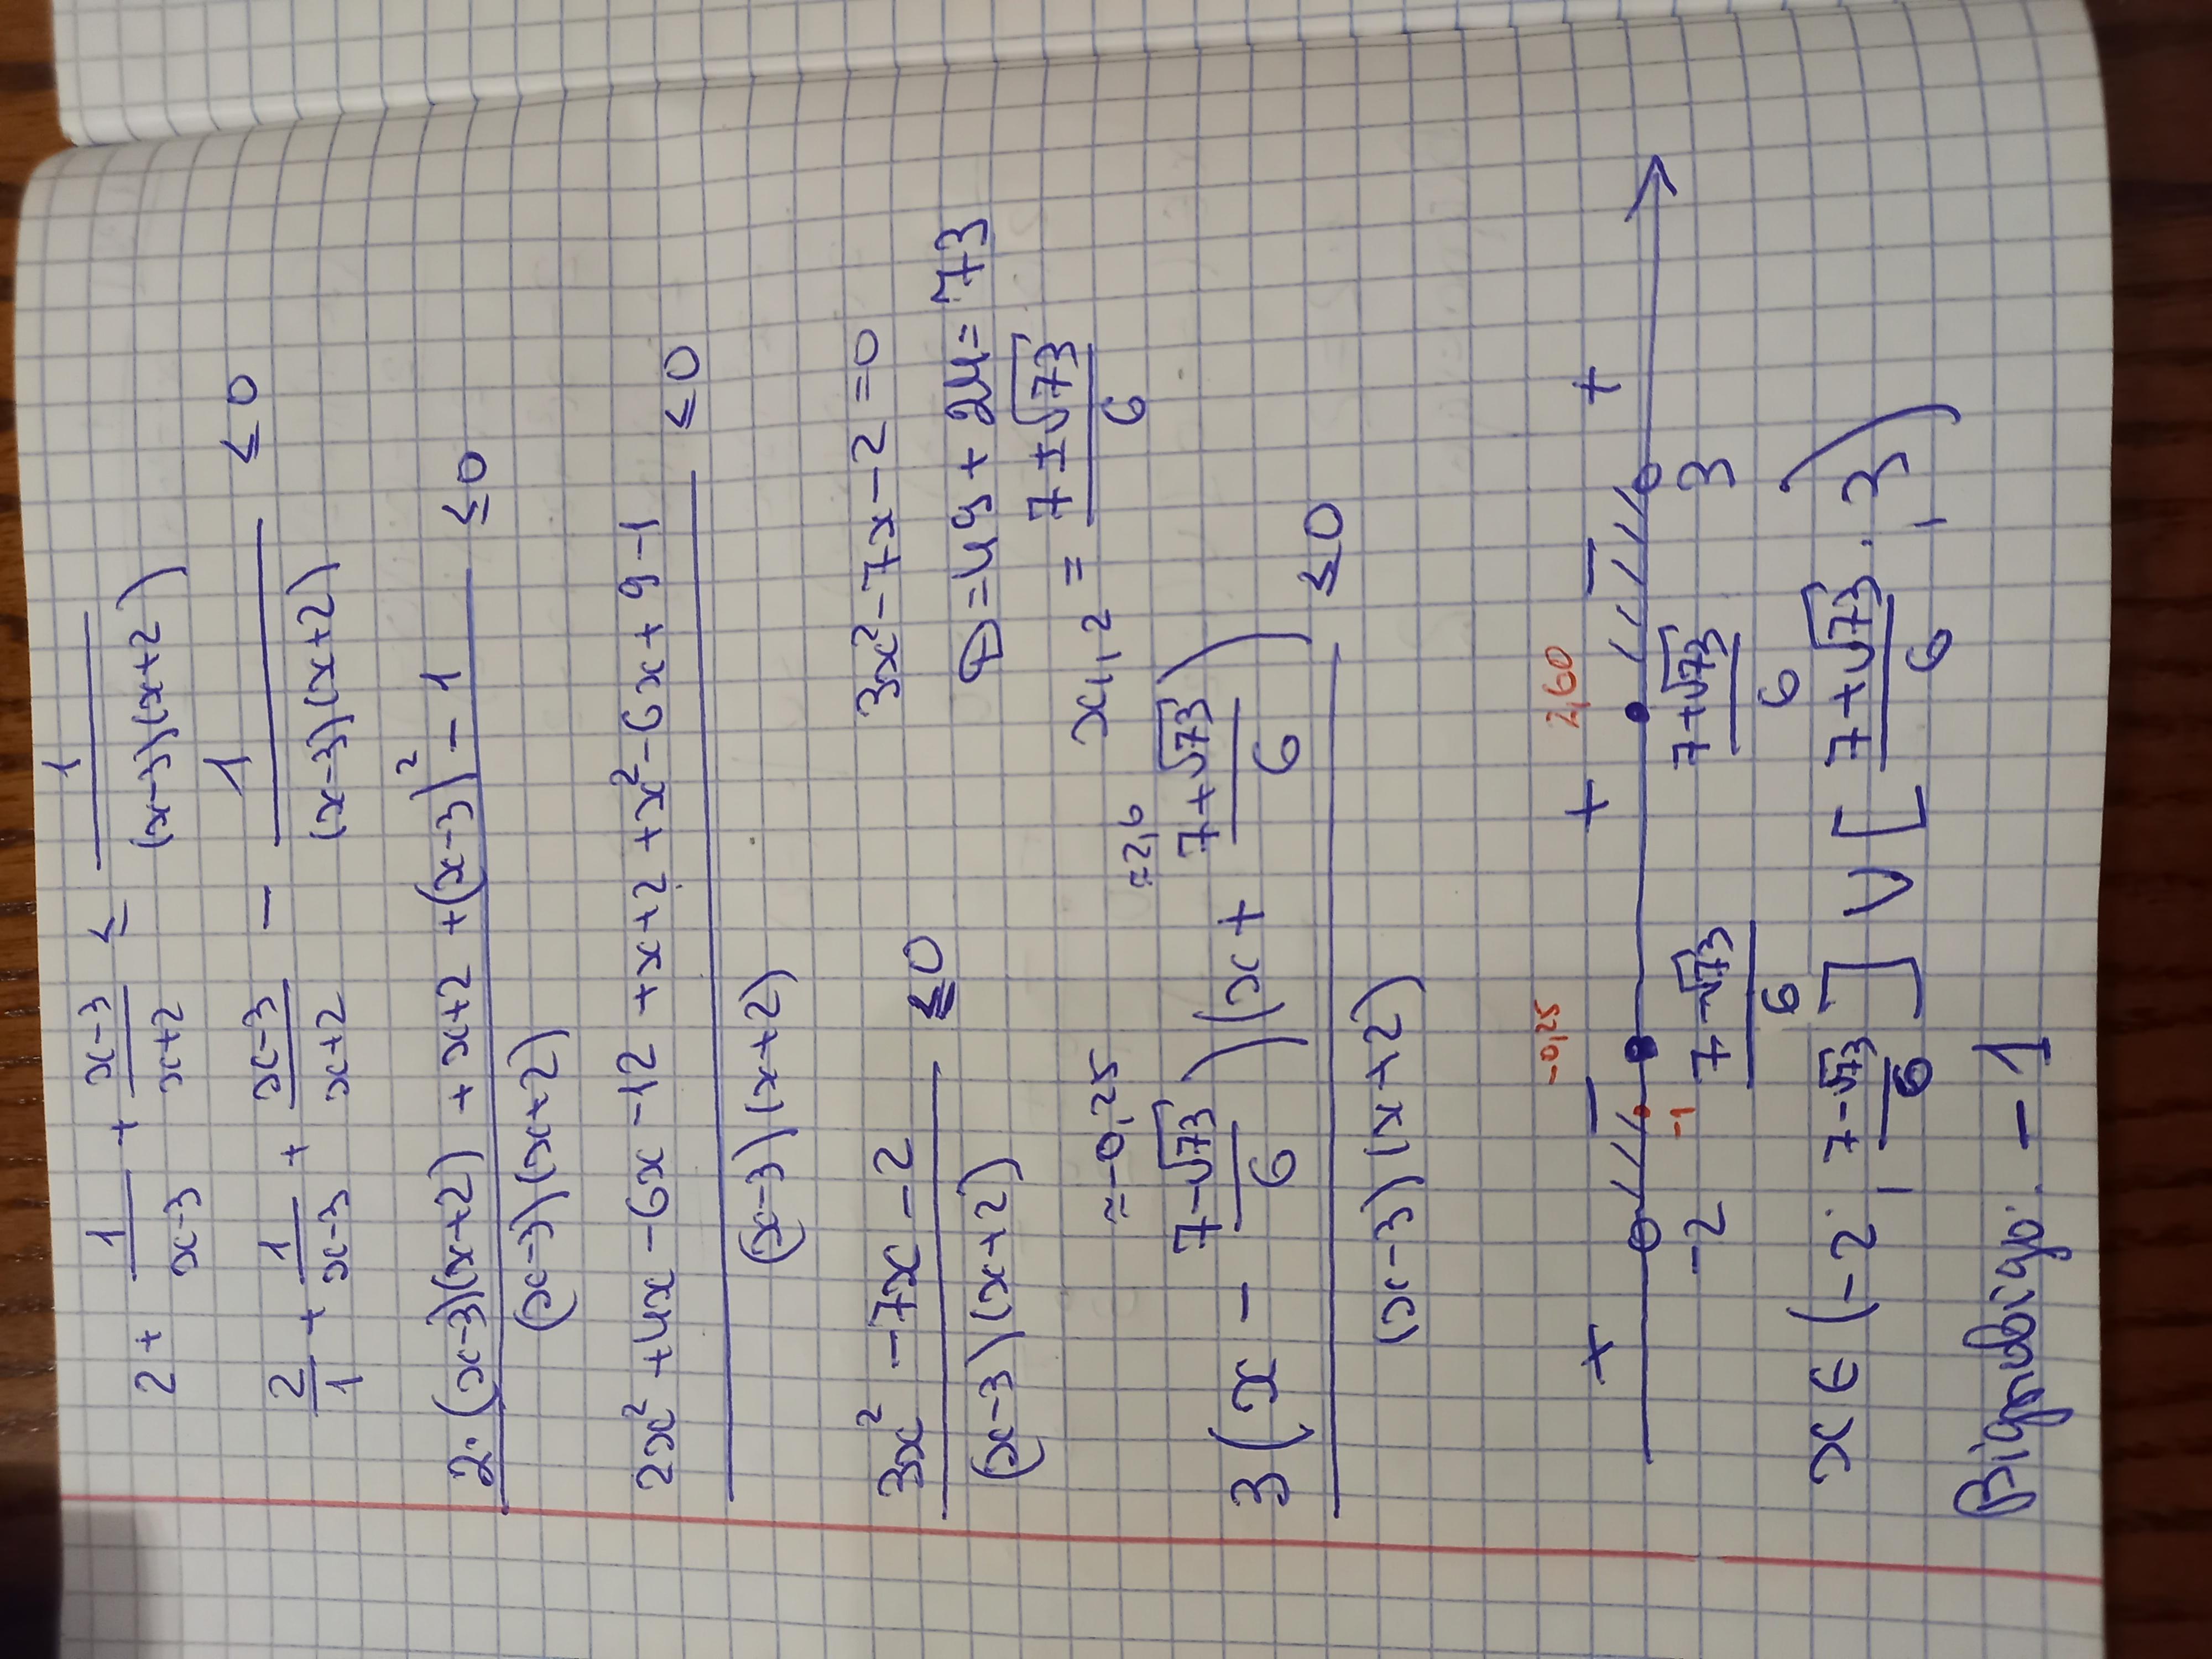 2 + 1/(x-3) + (x-3)/(x+2) ≤ 1/((x-3)(x+2))
2/1 + 1/(x-3) + (x-3)/(x+2) - 1/((x-3)(x+2)) ≤ 0
(2·(x-3)(x+2) + x+2 + (x-3)² - 1)/((x-3)(x+2)) ≤ 0
(2x² + 4x - 6x - 12 + x + 2 + x² - 6x + 9 - 1)/((x-3)(x+2)) ≤ 0
(3x² - 7x - 2)/((x-3)(x+2)) ≤ 0
3x² - 7x - 2 = 0
D = 49 + 24 = 73
x1,2 = (7 ± √73)/6
≈ -0,25 ≈ 2,6
3(x - (7-√73)/6)(x + (7+√73)/6)/((x-3)(x+2)) ≤ 0
-0,25 2,60
+ - + - +
-2 -1 (7-√73)/6 (7+√73)/6 3
x ∈ (-2; (7-√73)/6] ∨ [(7+√73)/6; 3)
Відповідь: -1